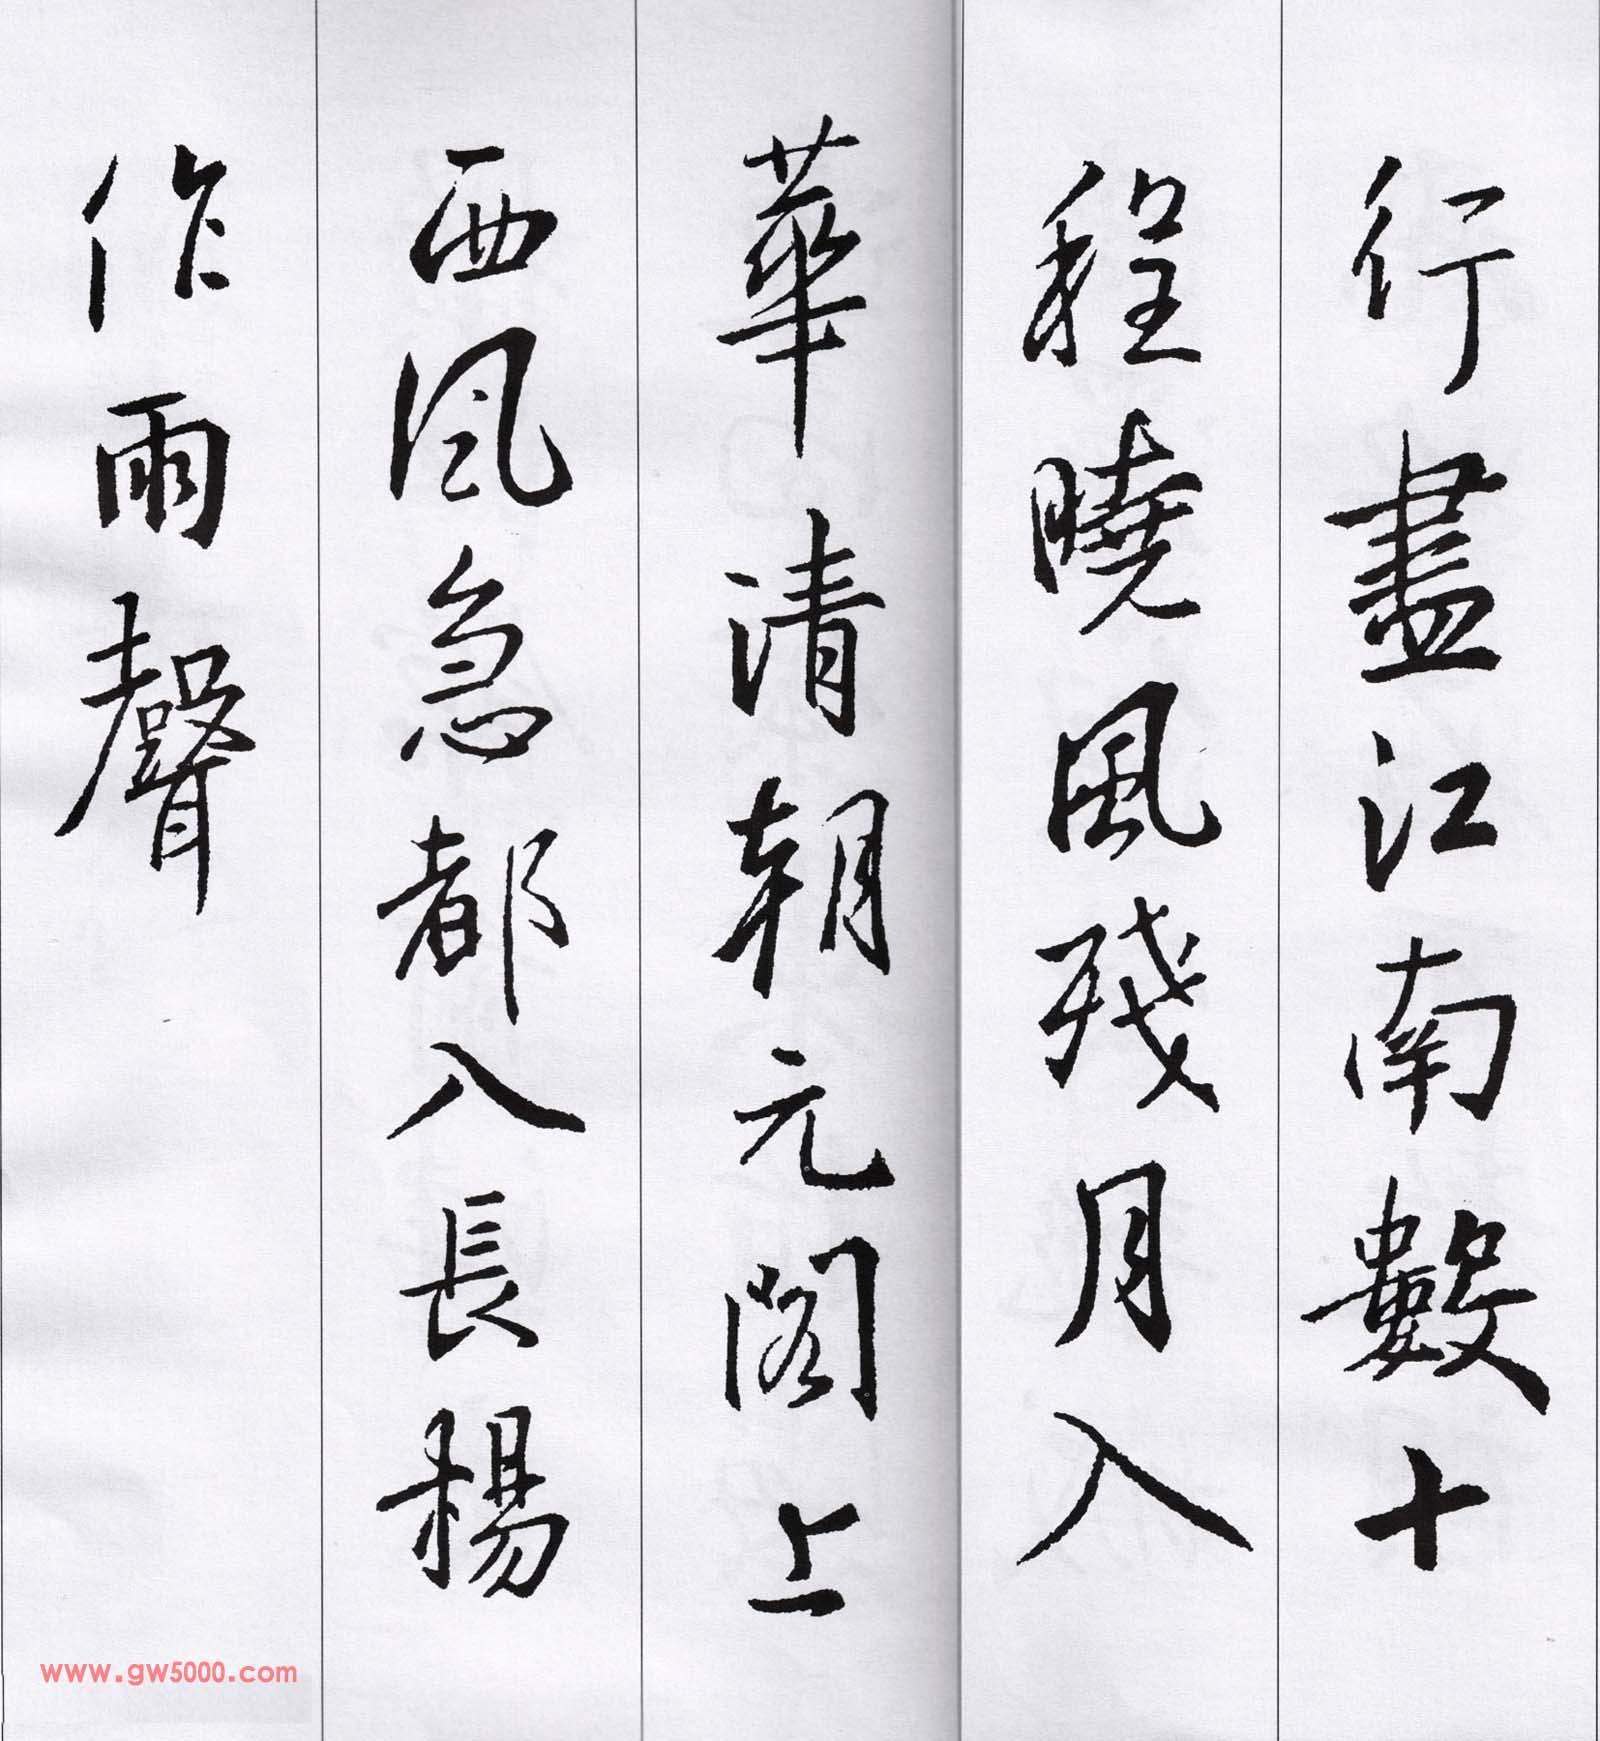 行盡江南數十
程曉風殘月入
華清朝元閣上
西風急都入長楊
作雨聲
www.gw5000.com